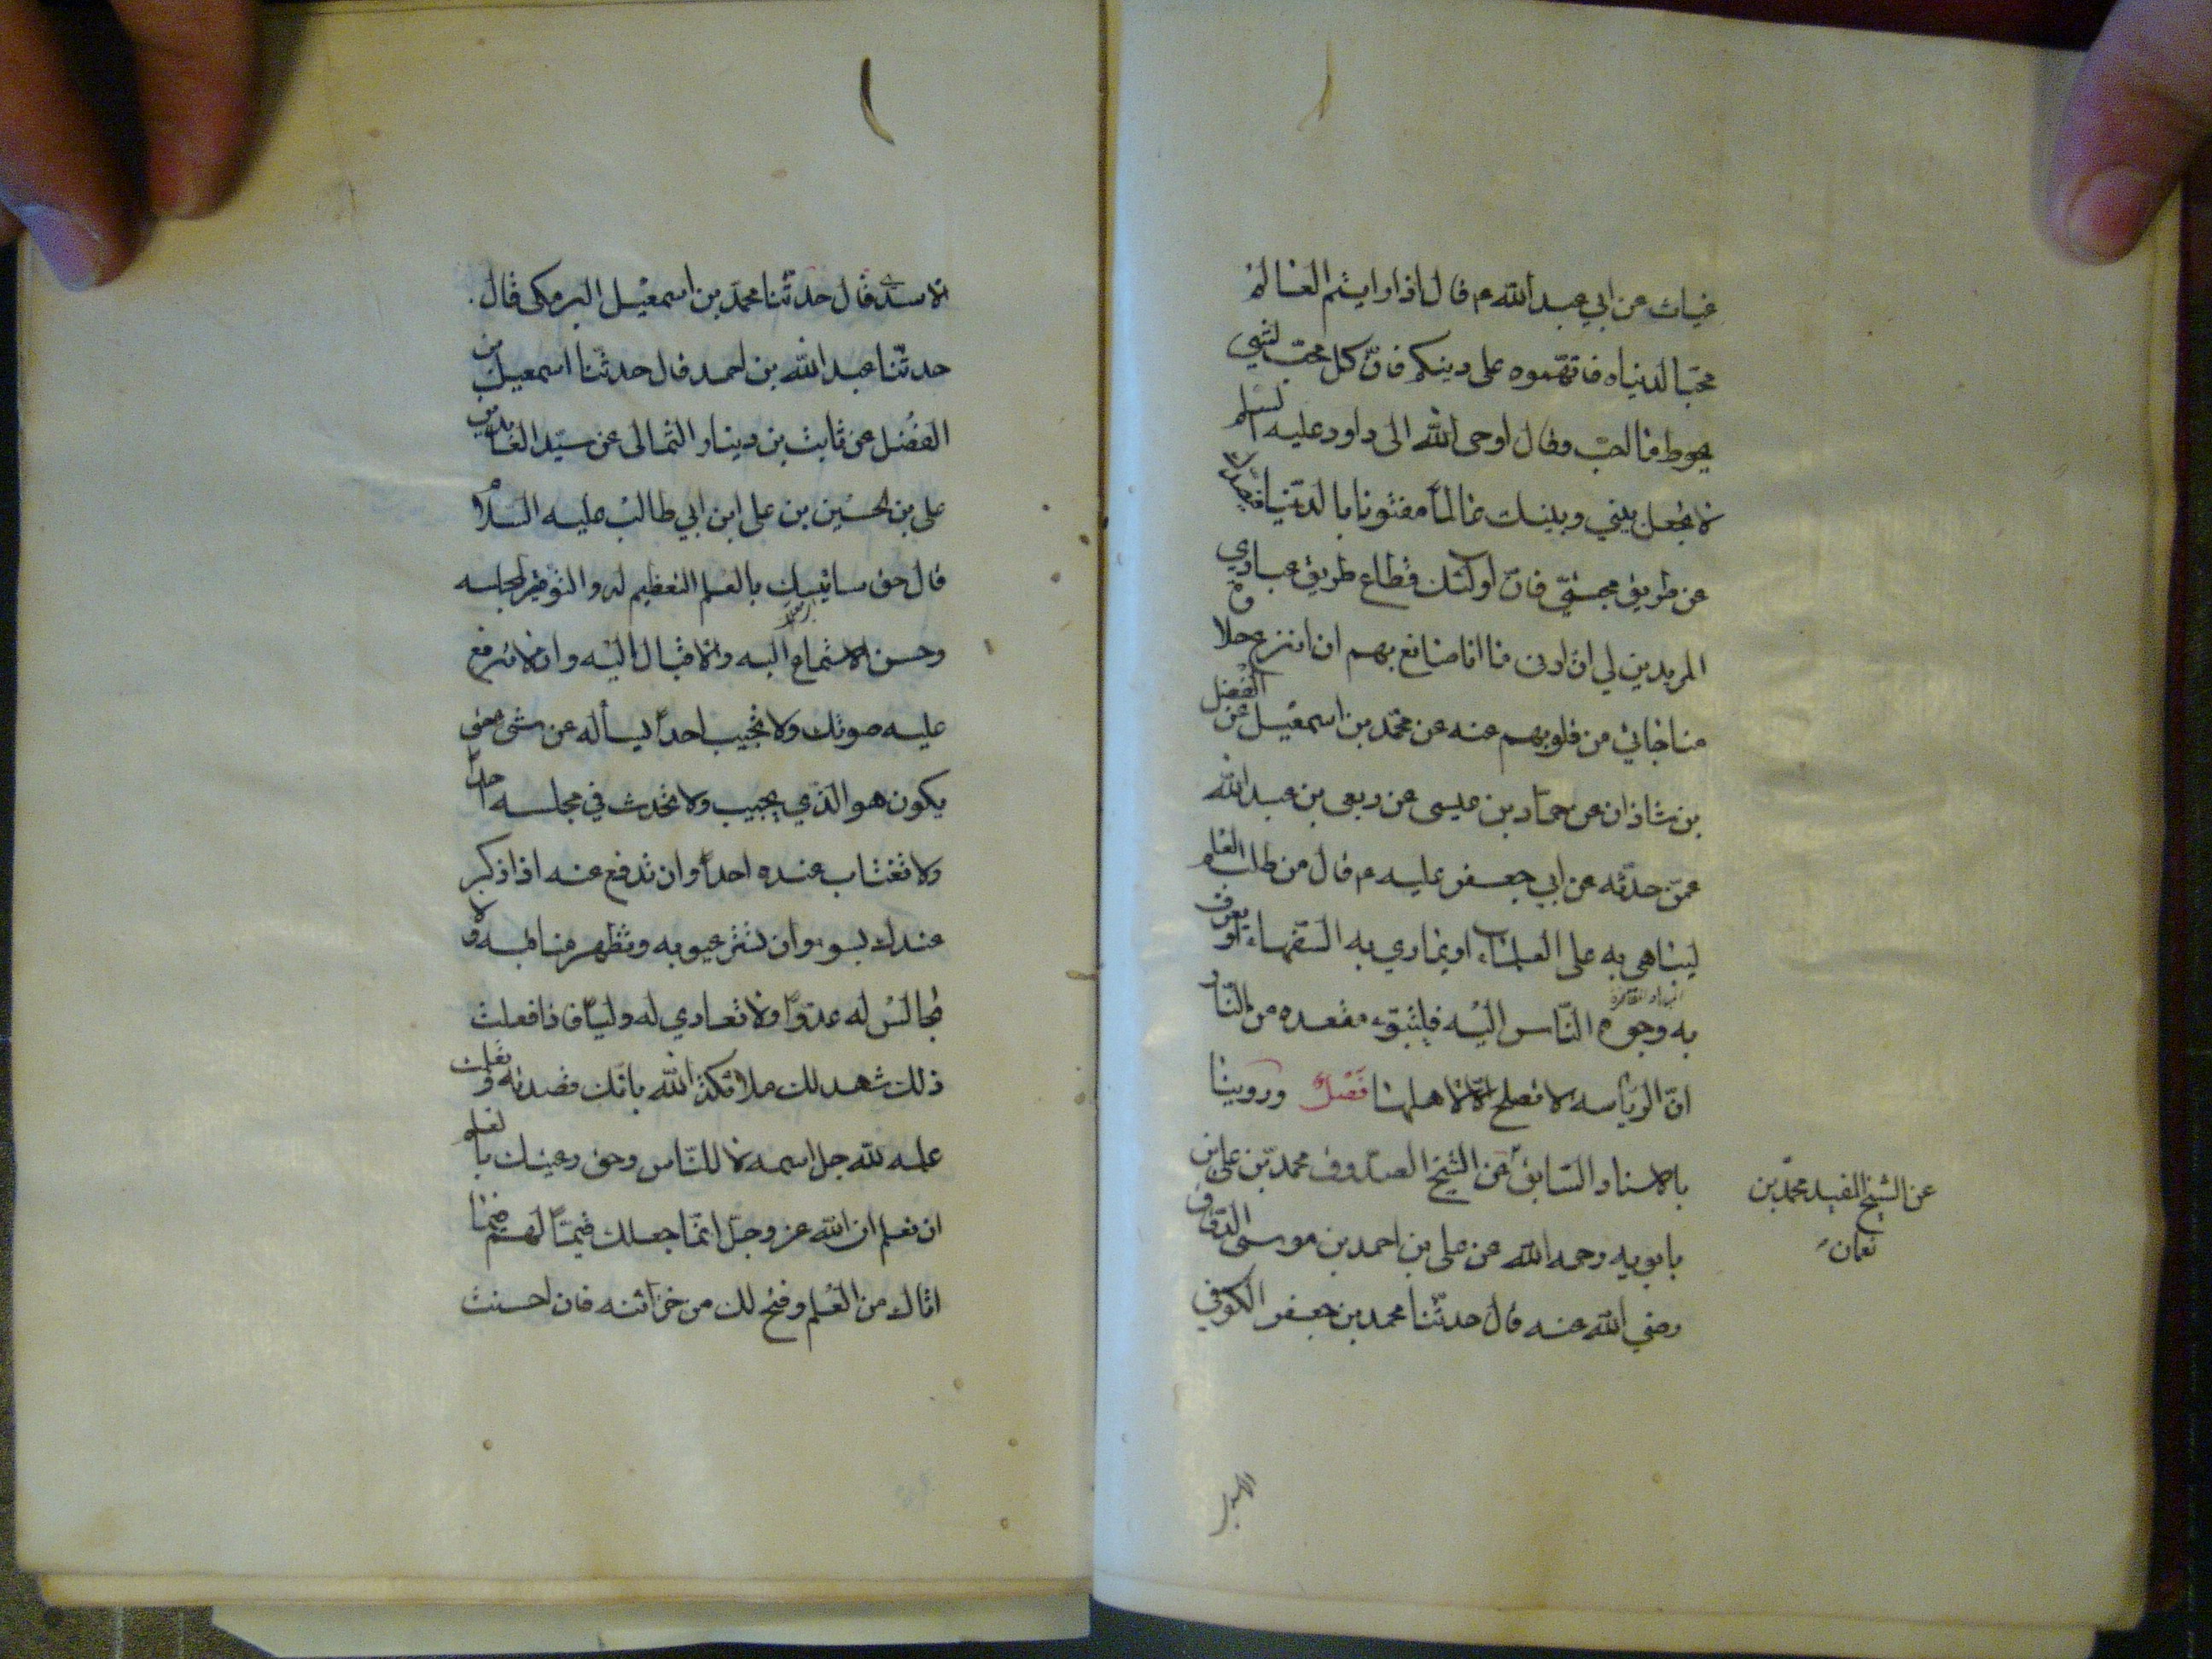 غياث عن ابي عبد الله ع قال اذا رايتم العالم
محبا لدنياه فاتهموه على دينكم فان كل محب لشيء
يحوط ما احب وقال اوحى الله الى داود عليه السلم
لا تجعل بيني وبينك عالما مفتونا بالدنيا فيصدك
عن طريق محبتي فان اولئك قطاع طريق عبادي
المريدين لي ان ادنى ما انا صانع بهم ان انزع حلاوة
مناجاتي من قلوبهم عنه عن محمد بن اسمعيل عن الفضل
بن شاذان عن حماد بن عيسى عن ربعي بن عبد الله
عمن حدثه عن ابي جعفر عليه م قال من طلب العلم
ليباهي به على العلماء او يماري به السفهاء او يصرف
به وجوه الناس اليه فليتبوء مقعده من النار
ان الرياسه لا تصلح الا لاهلها فصل وروينا
بالاسناد السابق عن الشيخ الصدوق محمد بن علي بن
عن الشيخ المفيد محمد بن
نعمان
بابويه رحمه الله عن علي بن احمد بن موسى الدقاق
رضي الله عنه قال حدثنا محمد بن جعفر الكوفي
الاسدي قال حدثنا محمد بن اسمعيل البرمكي قال
حدثنا عبد الله بن احمد قال حدثنا اسمعيل بن
الفضل عن ثابت بن دينار الثمالي عن سيد العابدين
علي بن الحسين بن علي ابن ابي طالب عليه السلام
قال حق سايسك بالعلم التعظيم له والتوقير لمجلسه
وحسن الاستماع اليه والاقبال اليه وان لا ترفع
عليه صوتك ولا تجيب احدا يسأله عن شئ حتى
يكون هو الذي يجيب ولا تحدث في مجلسه احدا
ولا تغتاب عنده احدا وان تدفع عنه اذا ذكر
عندك بسوء وان تستر عيوبه وتظهر مناقبه ولا
تجالس له عدوا ولا تعادي له وليا فاذا فعلت
ذلك شهد لك ملائكة الله بانك قصدته وتعلمت
علمه لله جل اسمه لا للناس وحق رعيتك بالعلم
ان تعلم ان الله عز وجل انما جعلك قيما لهم فيما
اتاك من العلم وفتح لك من خزائنه فان احسنت